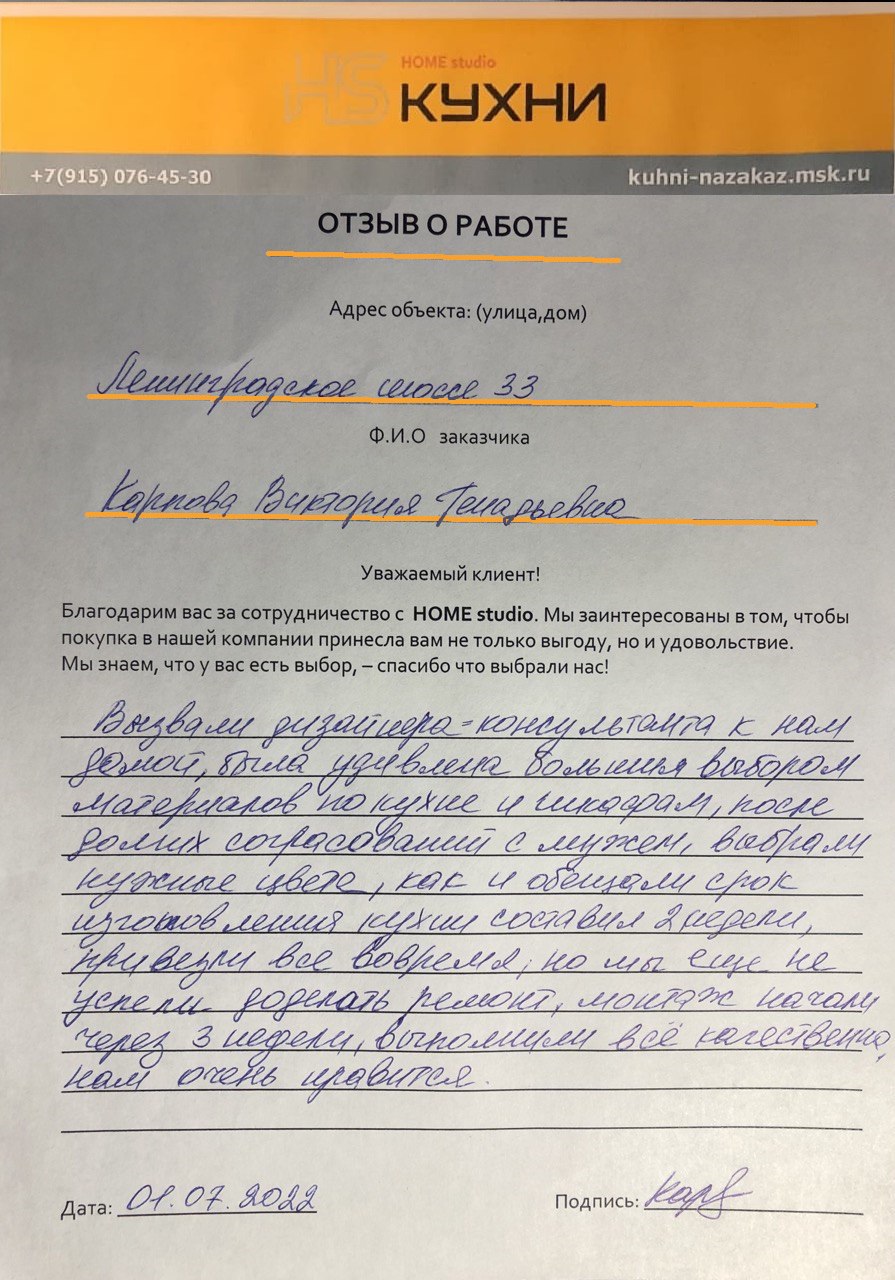 HS
HOME studio
КУХНИ
+7(915) 076-45-30
kuhni-nazakaz.msk.ru
ОТЗЫВ О РАБОТЕ
Адрес объекта: (улица,дом)
Ленинградское шоссе 33
Ф.И.О заказчика
Карпова Виктория Генадьевна
Уважаемый клиент!
Благодарим вас за сотрудничество с HOME studio. Мы заинтересованы в том, чтобы
покупка в нашей компании принесла вам не только выгоду, но и удовольствие.
Мы знаем, что у вас есть выбор, – спасибо что выбрали нас!
Вызвали дизайнера-консультанта к нам
домой, была удивлена большим выбором
материалов по кухне и шкафам, после
долгих согласований с мужем, выбрали
нужные цвета, как и обещали срок
изготовления кухни составил 2 недели,
привезли все вовремя, но мы еще не
успели доделать ремонт, монтаж начали
через 3 недели, выполнили всё качественно,
нам очень нравится.
Дата: 01.07.2022
Подпись: Карп